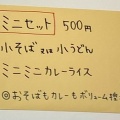 ミニセット 500円
小そば または 小うどん
ミニミニカレーライス
◎おそばもカレーもボリューム控